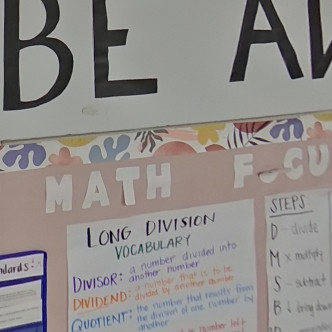 BE AN
MATH FOCU
LONG DIVISION
VOCABULARY
DIVISOR: a number divided into
another number
DIVIDEND: a number that is to be
divided by another number
QUOTIENT: the number that results from
the division of one number by
another
number left
ndards
STEPS
D - divide
M x multiply
S - subtract
B ↓ bring down